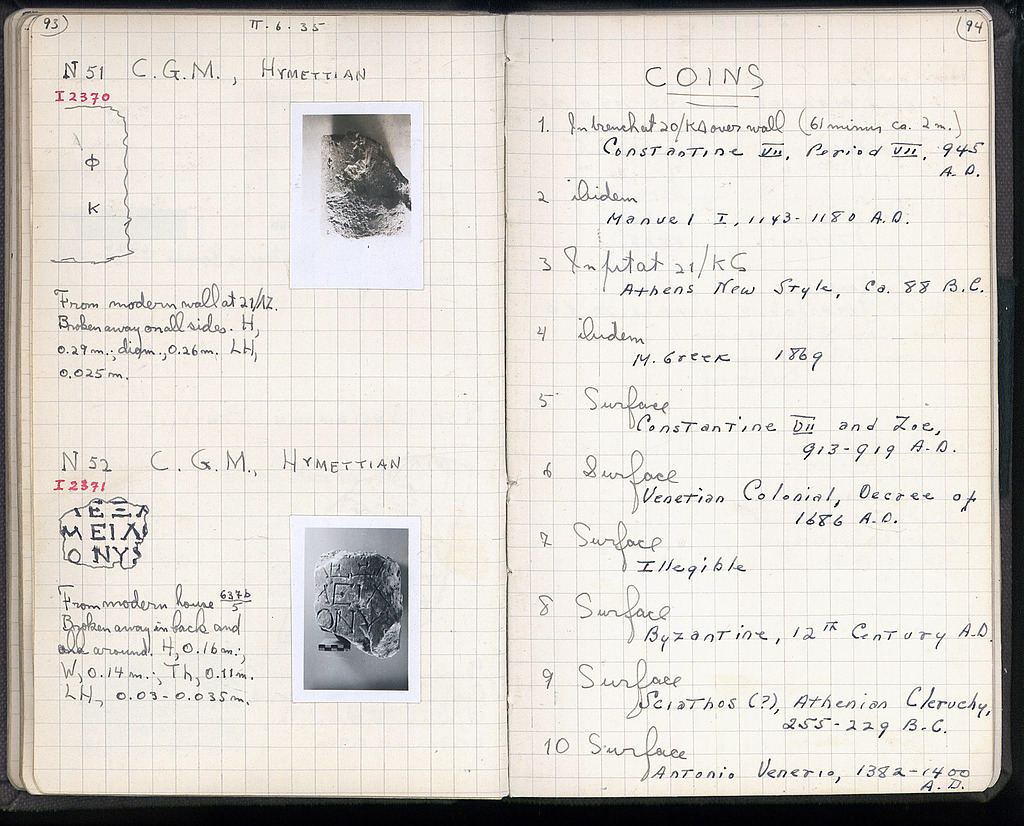 93
II.6.35
N 51 C.G.M., HYMETTIAN
I 2370
Φ
K
From modern wall at 21/IZ.
Broken away on all sides. H,
0.29 m.; diam., 0.26 m. LH,
0.025 m.
N 52 C.G.M., HYMETTIAN
I 2371
ΕΞΑ
ΜΕΙΛ
ΟΝΥΣ
From modern house 637b/5
Broken away in back and
all around. H, 0.16 m.;
W, 0.14 m.; Th, 0.11 m.
LH, 0.03-0.035 m.
94
COINS
1. In trench at 20/KΔ over wall (61 minus ca. 2 m.)
Constantine VII, Period VII, 945
A.D.
2 ibidem
Manuel I, 1143-1180 A.D.
3 In pit at 21/KC
Athens New Style, ca. 88 B.C.
4 ibidem
M. Greek 1869
5 Surface
Constantine VII and Zoe,
913-919 A.D.
6 Surface
Venetian Colonial, Decree of
1686 A.D.
7 Surface
Illegible
8 Surface
Byzantine, 12TH Century A.D.
9 Surface
Sciathos (?), Athenian Cleruchy,
255-229 B.C.
10 Surface
Antonio Venerio, 1382-1400
A.D.